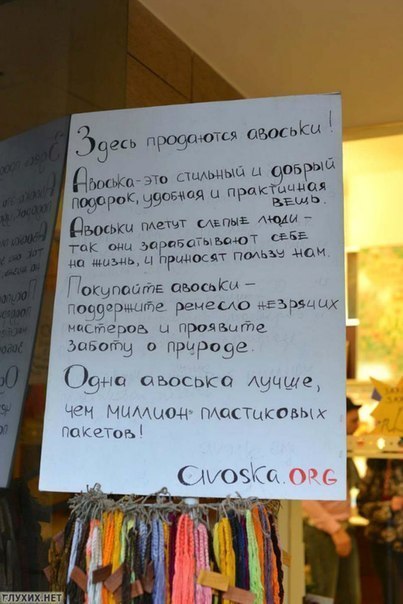 Здесь продаются авоськи!
Авоська-это стильный и добрый
подарок, удобная и практичная
вещь.
Авоськи плетут слепые люди –
так они зарабатывают себе
на жизнь, и приносят пользу нам.
Покупайте авоськи –
поддержите ремесло незрячих
мастеров и проявите
заботу о природе.
Одна авоська лучше,
чем миллион пластиковых
пакетов!
avoska.ORG
ГЛУХИХ.НЕТ